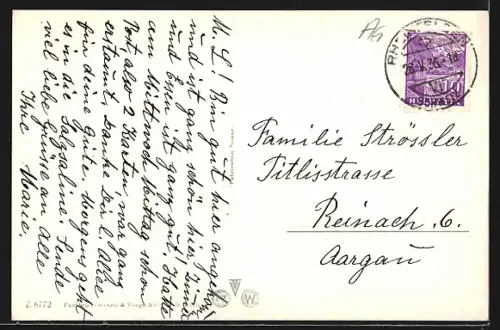 M. L! Bin gut hier angekom
und ist ganz schön hier. Zimmer
und Essen ist ganz gut! Hatte
am Mittwoch Mittag schon
Post, also 2 Karten, war ganz
erstaunt. Danke Dir l. Alti
für deine Güte. Morgens geht
es in die Salzsaline. Sende
viel liebe Grüsse an Alle
Ihre Marie.
AG
RHEINFELDEN
26.V.36
HELVETIA
10
Familie Strössler
Titlisstrasse
Reinach. 6.
Aargau
Z. 6772
W